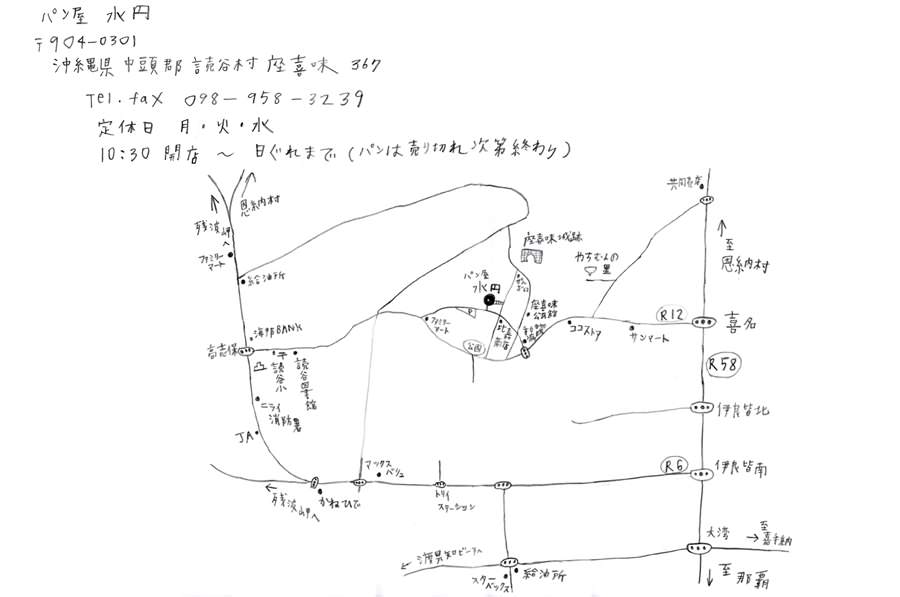 パン屋 水円
〒904-0301
沖縄県 中頭郡 読谷村 座喜味 367
Tel.fax 098-958-3239
定休日 月・火・水
10:30 開店 〜 日ぐれまで (パンは売り切れ次第終わり)
恩納村
残波岬へ
ファミリーマート
給油所
海邦BANK
高志保
読谷小
読谷図書館
ニライ消防署
JA
残波岬へ
かねひで
マックスバリュ
トリイステーション
渡具知ビーチへ
スターバックス
給油所
座喜味城跡
パン屋
水円
座喜味
公民館
ファミリーマート
P
公園
ココストア
サンマート
やちむんの
里
共同売店
至
恩納村
R12
喜名
R58
伊良皆北
R6
伊良皆南
大湾
至
嘉手納
至 那覇